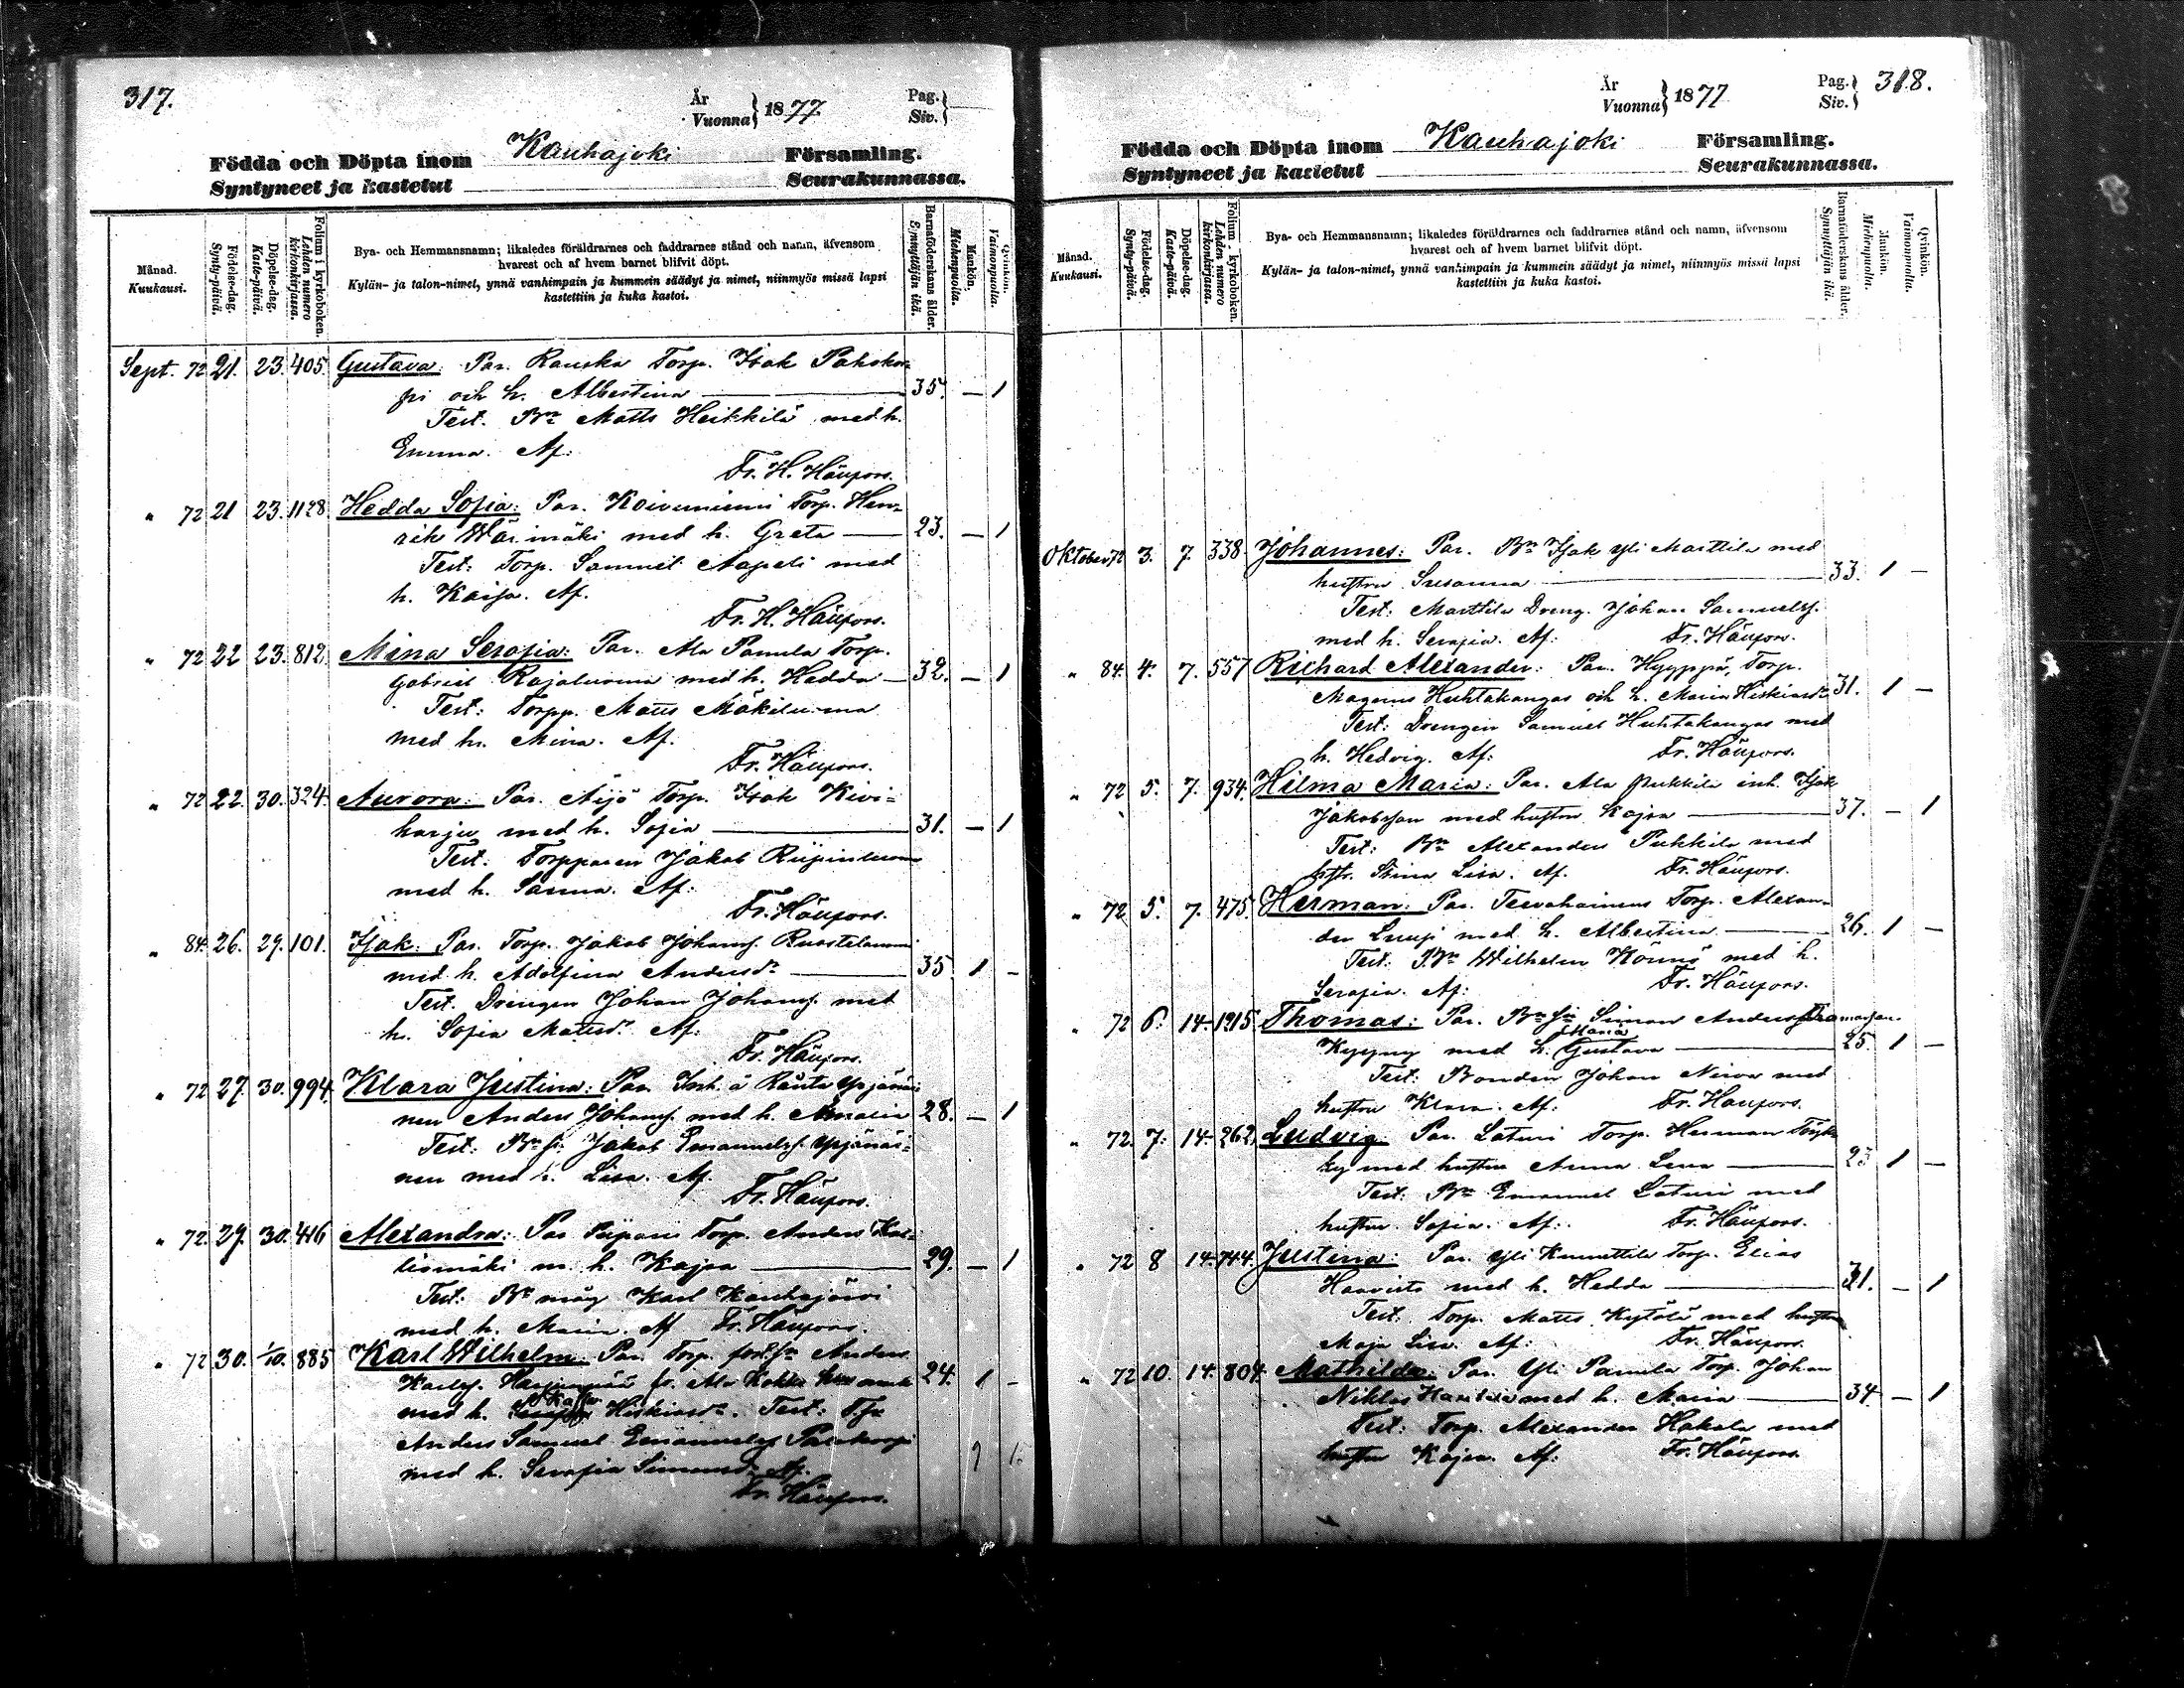 317.
År
Vuonna } 1877.
Pag.
Siv. }
Födda och Döpta inom Kauhajoki Församling.
Syntyneet ja kastetut Seurakunnassa.
Månad.
Kuukausi.
Födelse-dag.
Synty-päivä.
Döpelse-dag.
Kaste-päivä.
Folium i kyrkoboken.
Lehden numero kirkonkirjassa.
Bya- och Hemmansnamn; likaledes föräldrarnes och faddrarnes stånd och namn, äfvensom
hvarest och af hvem barnet blifvit döpt.
Kylän- ja talon-nimet, ynnä vanhimpain ja kummein säädyt ja nimet, niinmyös missä lapsi
kastettiin ja kuka kastoi.
Barnaföderskans ålder.
Synnyttäjän ikä.
Mankön.
Miehenpuolia.
Qvinkön.
Vaimonpuolia.
Sept. 72 21. 23. 405. Gustava: Par. Ranska Torp. Isak Pahkka-
pi och h. Albertina 35. — 1
Test. Bn Matts Heikkilä med h.
Emma. Af:
Fr. H. Häupors.
" 72 21 23. 1128 Hedda Sofia: Par. Koivuniemi Torp. Hen-
rik Wäi mäki med h. Greta 23. — 1
Test: Torp. Samuel Aapeli med
h. Kaisa. Af.
Fr. H. Häupors.
" 72 22 23. 812. Mina Serafia: Par. Ala Panula Torp.
Gabriel Rajaluoma med h. Hedda 32. — 1
Test: Torpp. Matts Mäkiluoma
med h. Mina. Af.
Fr. Häupors.
" 72 22. 30. 324. Aurora: Par. Äijö Torp. Isak Kivi-
harju med h. Sofia 31. — 1
Test: Torpparen Jakob Riipinluoma
med h. Sanna. Af:
Fr. Häupors.
" 84. 26. 29. 101. Isak: Par. Torp. Jakob Johans. Ruostelammi
med h. Adolfina Andersdr 35 1 -
Test. Drengen Johan Johans. med
h. Sofia Mattsdr. Af:
Fr. Häupors.
" 72 27. 30. 994. Klara Justina: Par. Inh. å Ranta Ypjänäi-
nen Anders Johans. med h. Amalia 28. — 1
Test: Jakob Emanuels. Ypjänäi-
nen med h. Lisa. Af.
Fr. Häupors.
" 72. 27. 30. 416 Alexandra: Par. Piipari Torp. Anders
m. h. Kajsa 29. — 1
Test: Bn måg Karl Kauhajärvi
med h. Maria. Af Fr. Häupors.
" 72 30. 1/10. 885 Karl Wilhelm: Par. Torp. Anders
Karls. 24. 1 -
med h. Hiskiasdr. Test:
Anders Samuel Emanuels.
med h. Serafia Simonsdr. Af.
Fr. Häupors.
År
Vuonna } 1877
Pag.
Siv. } 318.
Födda och Döpta inom Kauhajoki Församling.
Syntyneet ja kastetut Seurakunnassa.
Månad.
Kuukausi.
Födelse-dag.
Synty-päivä.
Döpelse-dag.
Kaste-päivä.
Folium i kyrkoboken.
Lehden numero kirkonkirjassa.
Bya- och Hemmansnamn; likaledes föräldrarnes och faddrarnes stånd och namn, äfvensom
hvarest och af hvem barnet blifvit döpt.
Kylän- ja talon-nimet, ynnä vanhimpain ja kummein säädyt ja nimet, niinmyös missä lapsi
kastettiin ja kuka kastoi.
Barnaföderskans ålder.
Synnyttäjän ikä.
Mankön.
Miehenpuolia.
Qvinkön.
Vaimonpuolia.
Oktober 72 3. 7. 338 Johannes: Par. Bn Isak Yli Marttila med
hustru Susanna 33. 1 —
Test: Marttila Dreng. Johan Samuels.
med h. Serafia. Af: Fr. Häupors.
" 84. 4. 7. 557 Richard Alexander: Par. Hyyppä, Torp.
Magnus Huhtakangas och h. Maria Hiskiasdr 31. 1 —
Test: Drengen Samuel Huhtakangas med
h. Hedvig. Af: Fr. Häupors.
" 72 5. 7. 934. Hilma Maria: Par. Ala Pukkila inh. Isak
Jakobsson med hustru Kajsa 37. — 1
Test: Bn Alexander Pukkila med
hstr. Stina Lisa. Af. Fr. Häupors.
" 72 5. 7. 475. Herman: Par. Tervahaminne Torp. Alexan-
der Luupi med h. Albertina 26. 1 —
Test. Wilhelm Könnö med h.
Serafia. Af: Fr. Häupors.
" 72 6. 14. 1215 Thomas: Par. Simon Anders
Maria
Kyyny med h. Gustava 25. 1 —
Test: Bonden Johan Nirva med
hustru Klara. Af: Fr. Häupors.
" 72. 7. 14. 262. Ludvig Par. Laturi Torp. Herman
med hustru Anna Lena 23 1 —
Test. Bn Emanuel Laturi med
hustru Sofia. Af: Fr. Häupors.
" 72 8 14. 744. Justina: Par. Yli Knuuttila Torp. Elias
Haavisto med h. Hedda 31. — 1
Test. Torp. Matts Kytölä med hustru
Maja Lisa. Af: Fr. Häupors.
" 72 10. 14. 804. Mathilda: Par. Yli Panula Torp. Johan
Niklas med h. Maria 34 — 1
Test: Torp. Alexander Hakala med
hustru Kajsa. Af: Fr. Häupors.